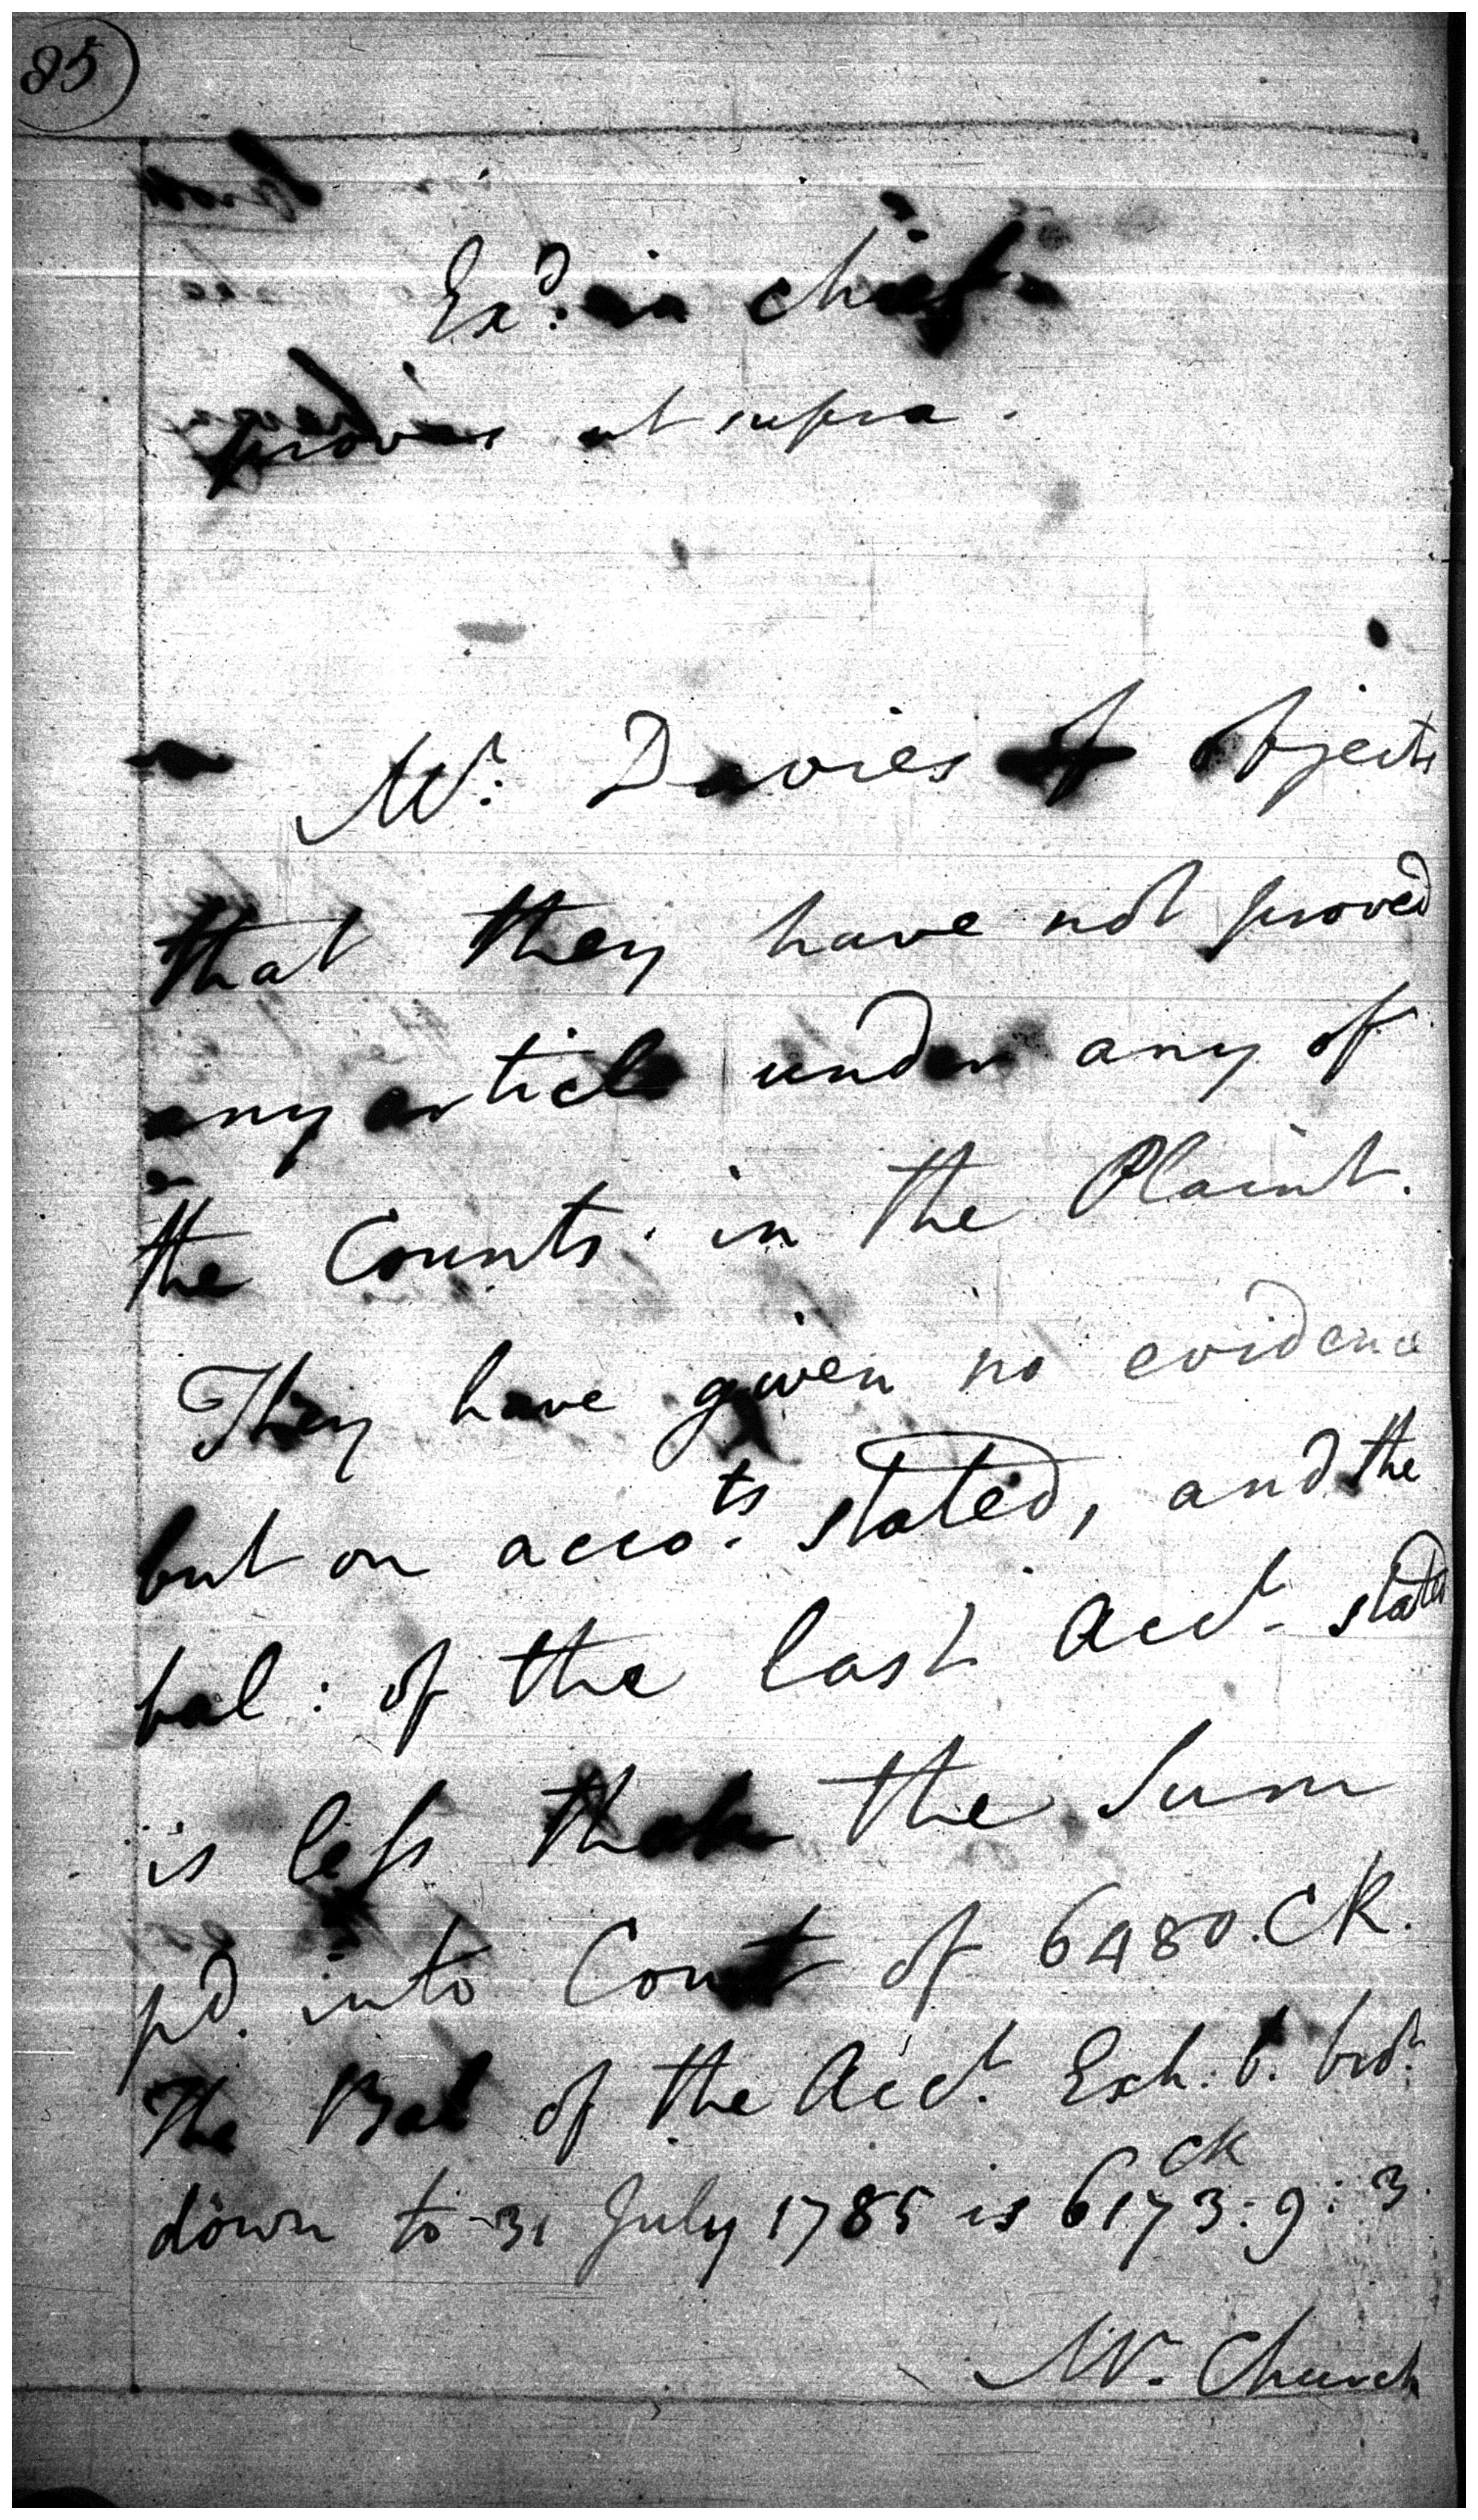 85
Exd: in chief
proves ut supra.
Mr: Davies objects
that they have not proved
any article under any of
the Counts in the Plaint.
They have given no evidence
but on accots. stated, and the
bal: of the last Acct. stated
is less than the Sum
pd. into Court of 6480.CR.
The Bal of the Acct. Exh: b. brot.
down to 31 July 1785 is 6173:9:3.
CR
Mr. Church